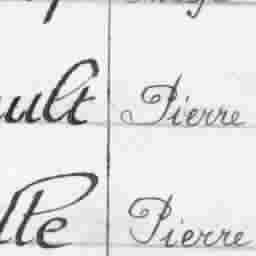 ult Pierre
lle Pierre